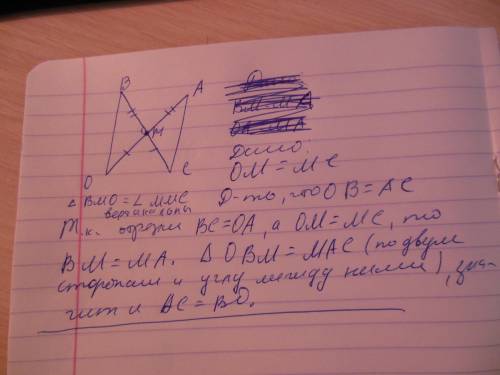 B
A
M
O
C
Дано:
OM = MC
Д-ть, что OB = AC
∠ BMO = ∠ MMC
вертикальны
Т.к. отрезки BC = OA, а OM = MC, то
BM = MA. Δ OBM = MAC (по двум
сторонам и углу между ними), зна-
чит и AC = BO.